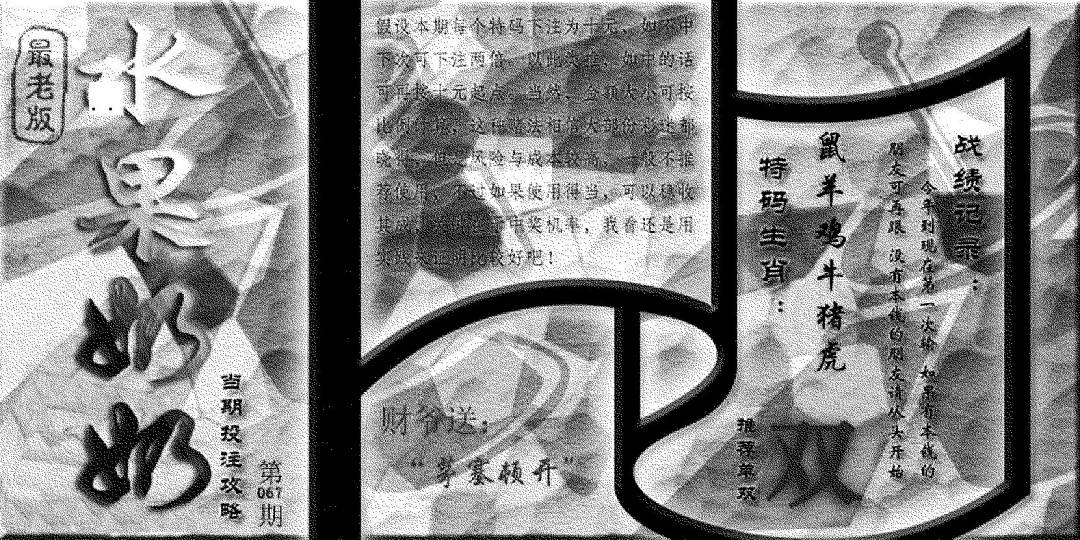 最老版
水果奶奶
当期投注攻略
第
067
期
假设本期每个特码下注为十元，如不中
下次可下注两倍，以此类推，如中的话
可再按十元起点。当然，金额大小可按
比例
这种
法相信大部份彩生都
风险与成本较高，一般不推
荐使用，不过如果使用得当，可以稳收
中奖机率，我看还是用
比较好吧！
财爷送：
“茅塞顿开”
战绩记录：
今年到现在第一次输 如果有本钱的
朋友可再跟 没有本钱的朋友请从大开始
鼠羊鸡牛猪虎
特码生肖：
推荐单双
双